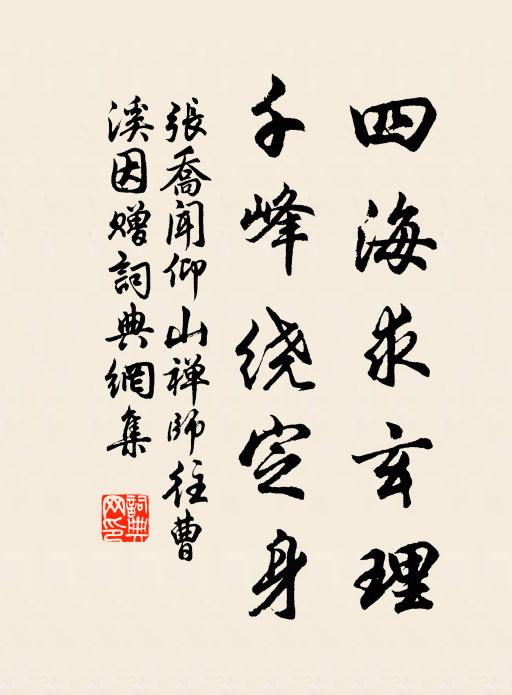 四海求玄理
千峰绕定身
張喬聞仰山禅師往曹
溪因赠詞典網集
詞典網印